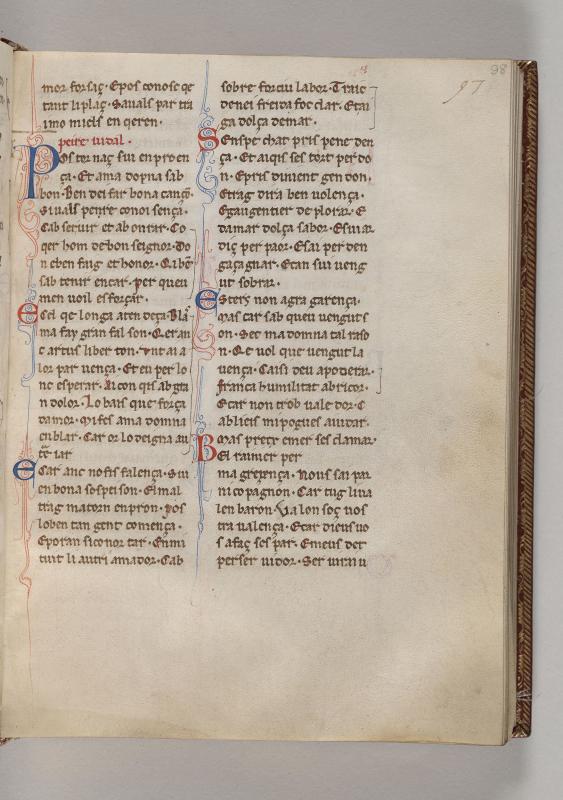 98
97
mor forsaç. E pos conosc qe
tant li plaç. Sauals par tra
imo miels en qeren.
peire uidal.
Pos tornaç sui en proen
ça. Et ama dopna sab
bon. Ben dei far bona canço.
Siuals penre conoisença.
Cab seruir et ab onrar. Co
qer hom de bon seignor. Do
n e ben faig et honor. Qi be
sab tenir en car. Per queu
men uoil esforçar.
E cel qe longa atendeça. Blas
ma fay gran fal son. Qeran
e artus li breton.
lor par uença. Et eu per lo
nc esperar. Ai con qis ab gra
n dolor. Lo bais que força
damor. Mi fes a ma domna
enblar. Car or lo deigna au
trear
E car anc nofis falença. Sui
en bona sospeison. El mal
trag matorn en pron. Pos
lo ben tan gent comença.
E poran si conortar. En mi
tuit li autri amador. Cab
sobre forciu labor. Traie
de nei freida foc clar. Et ai
ga dolça de mar.
Sens pechat pris peneden
ça. Et aiqis ses tort perdo
n. E pris diuient gen don.
Etrag dira ben uolença.
E gaugentier de plorar. E
damar dolça sabor. Esui ar
diç per paor. E sai perden
gaçagnar. Et can sui ueng
ut sobrar.
Esters non agra garença.
Mas car sab queu uengut s
on. Sec ma domna tal raso
n. Qe uol que uengut la
uença. Caisi deu apoderar.
franca humilitat abricor.
Et car non trob ualedor. C
ab lieis mi pogues aiudar.
Mas preçr emer ses clamar.
Bel rainier per
ma greçença. Nous sai par
ni co pagnon. Car tug li ua
len baron. Ualon soç uos
tra ualença. Et car dieus uo
s a faç ses par. E meus det
per seruidor. Seruirai u